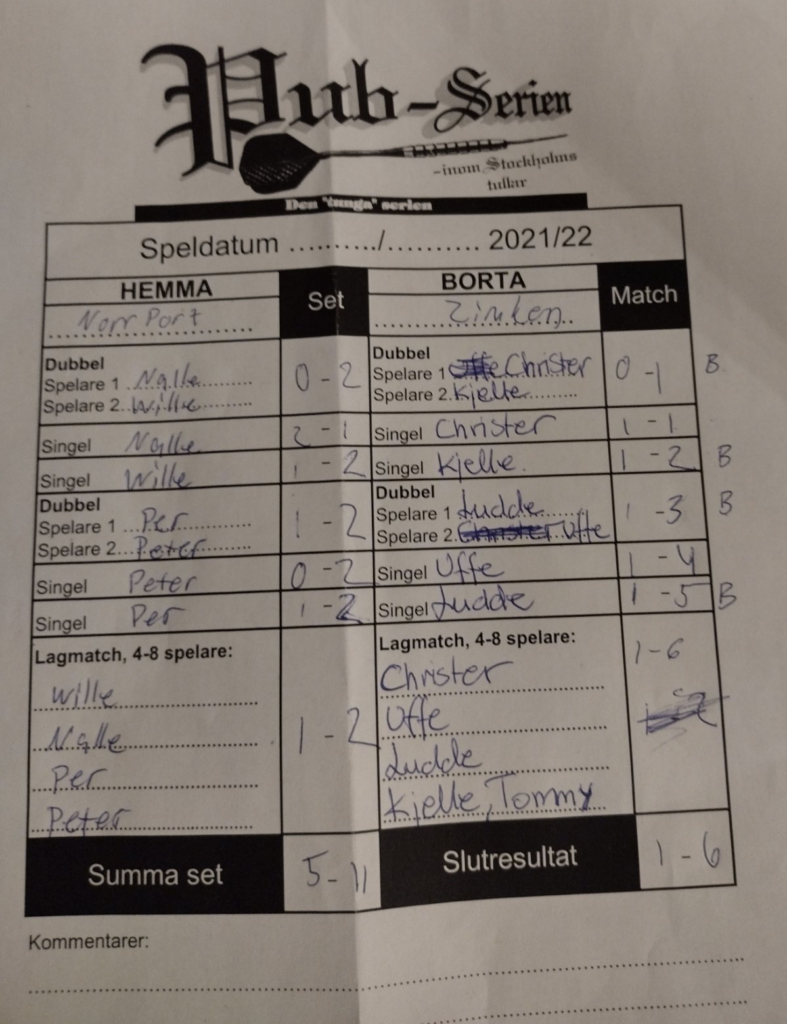 Pub-Serien
-inom Stockholms
tullar
Den "tunga" serien
Speldatum ........../.......... 2021/22
HEMMA Set BORTA Match
Norr Port Zinken
Dubbel Dubbel
Spelare 1 Nalle 0-2 Spelare 1 Uffe Christer 0-1 B
Spelare 2 Wille Spelare 2 Kjelle
Singel Nalle 2-1 Singel Christer 1-1
Singel Wille 1-2 Singel Kjelle 1-2 B
Dubbel Dubbel
Spelare 1 Per 1-2 Spelare 1 Ludde 1-3 B
Spelare 2 Peter Spelare 2 Christer Uffe
Singel Peter 0-2 Singel Uffe 1-4
Singel Per 1-2 Singel Ludde 1-5 B
Lagmatch, 4-8 spelare: Lagmatch, 4-8 spelare:
Wille Christer 1-6
Nalle 1-2 Uffe
Per Ludde
Peter Kjelle, Tommy
Summa set 5-11 Slutresultat 1-6
Kommentarer: